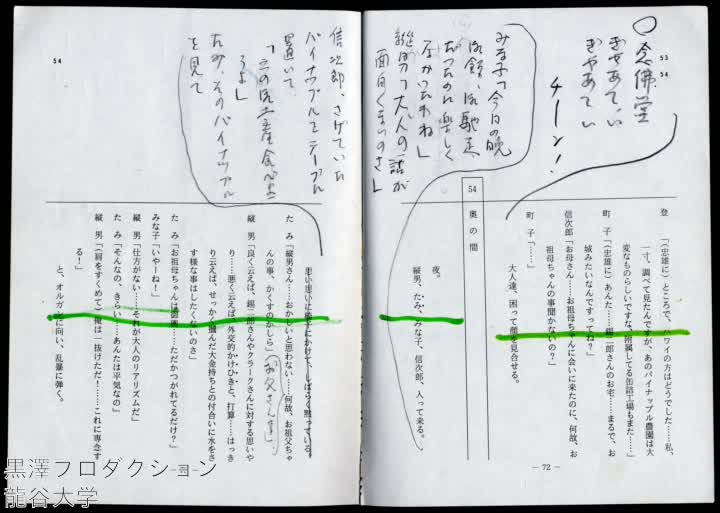 ○念佛堂
53
54
ぎゃあてい
ぎゃあてい
チーン!
登「(忠雄に)ところで、ハワイの方はどうでした……私、
一寸、調べて見たんですが、あのパイナップル農園は大
変なものらしいですな、附属してる缶詰工場もまた……」
町子「(忠雄に)あんた……錫二郎さんのお宅……まるで、お
城みたいなんですってね?」
信次郎「お母さん……お祖母ちゃんに会いに来たのに、何故、お
祖母ちゃんの事聞かないの?」
町子「……」
大人達、困って顔を見合せる。
54 奥の間
みな子「今日の晩
御飯、御馳走
だったのに楽しく
なかったわね」
縦男「大人の話が
面白くないのさ」
夜。
縦男、たみ、みな子、信次郎、入って来る。
― 72 ―
54
信次郎、さげていた
パイナップルをテーブルに
置いて
たみ、そのパイナップル
を見て
思い思いに椅子にかけて、しばらく黙っている。
たみ「縦男さん……おかしいと思わない……何故、お祖父ちゃ
んの事、かくすのかしら」
(お父さん達)
縦男「良く云えば、錫二郎さんやクラークさんに対する思いや
り……悪く云えば、外交的かけひきと、打算……はっき
り云えば、せっかく掴んだ大金持ちとの付合いに水をさ
す様な事はしたくないのさ」
たみ「お祖母ちゃんは……ただかつがれてるだけ?」
みな子「いやーね!」
縦男「仕方がない……それが大人のリアリズムだ」
たみ「そんなの、きらい……あんたは平気なの」
縦男「(肩をすくめて)俺は一抜けただ!……これに専念す
る!」
と、オルガンに向い、乱暴に弾く。
黒澤プロダクション
龍谷大学